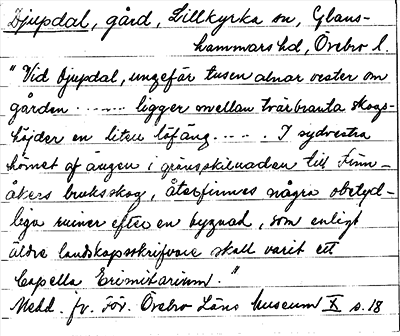 Djupdal, gård, Lillkyrka sn, Glans-
hammars hd, Örebro l.
"Vid Djupdal, ungefär tusen alnar vester om
gården ------ ligger mellan tvärbranta skogs-
höjder en liten löfäng ---- . I sydvestra
hörnet af ängen i gränsskilnaden till Finn-
åkers bruksskog, återfinnes några obetyd-
liga ruiner efter en bygnad, som enligt
äldre landskapsskrifvare skall varit ett
Capella Erimitarium."
Medd. fr. För. Örebro Läns Museum X s. 18